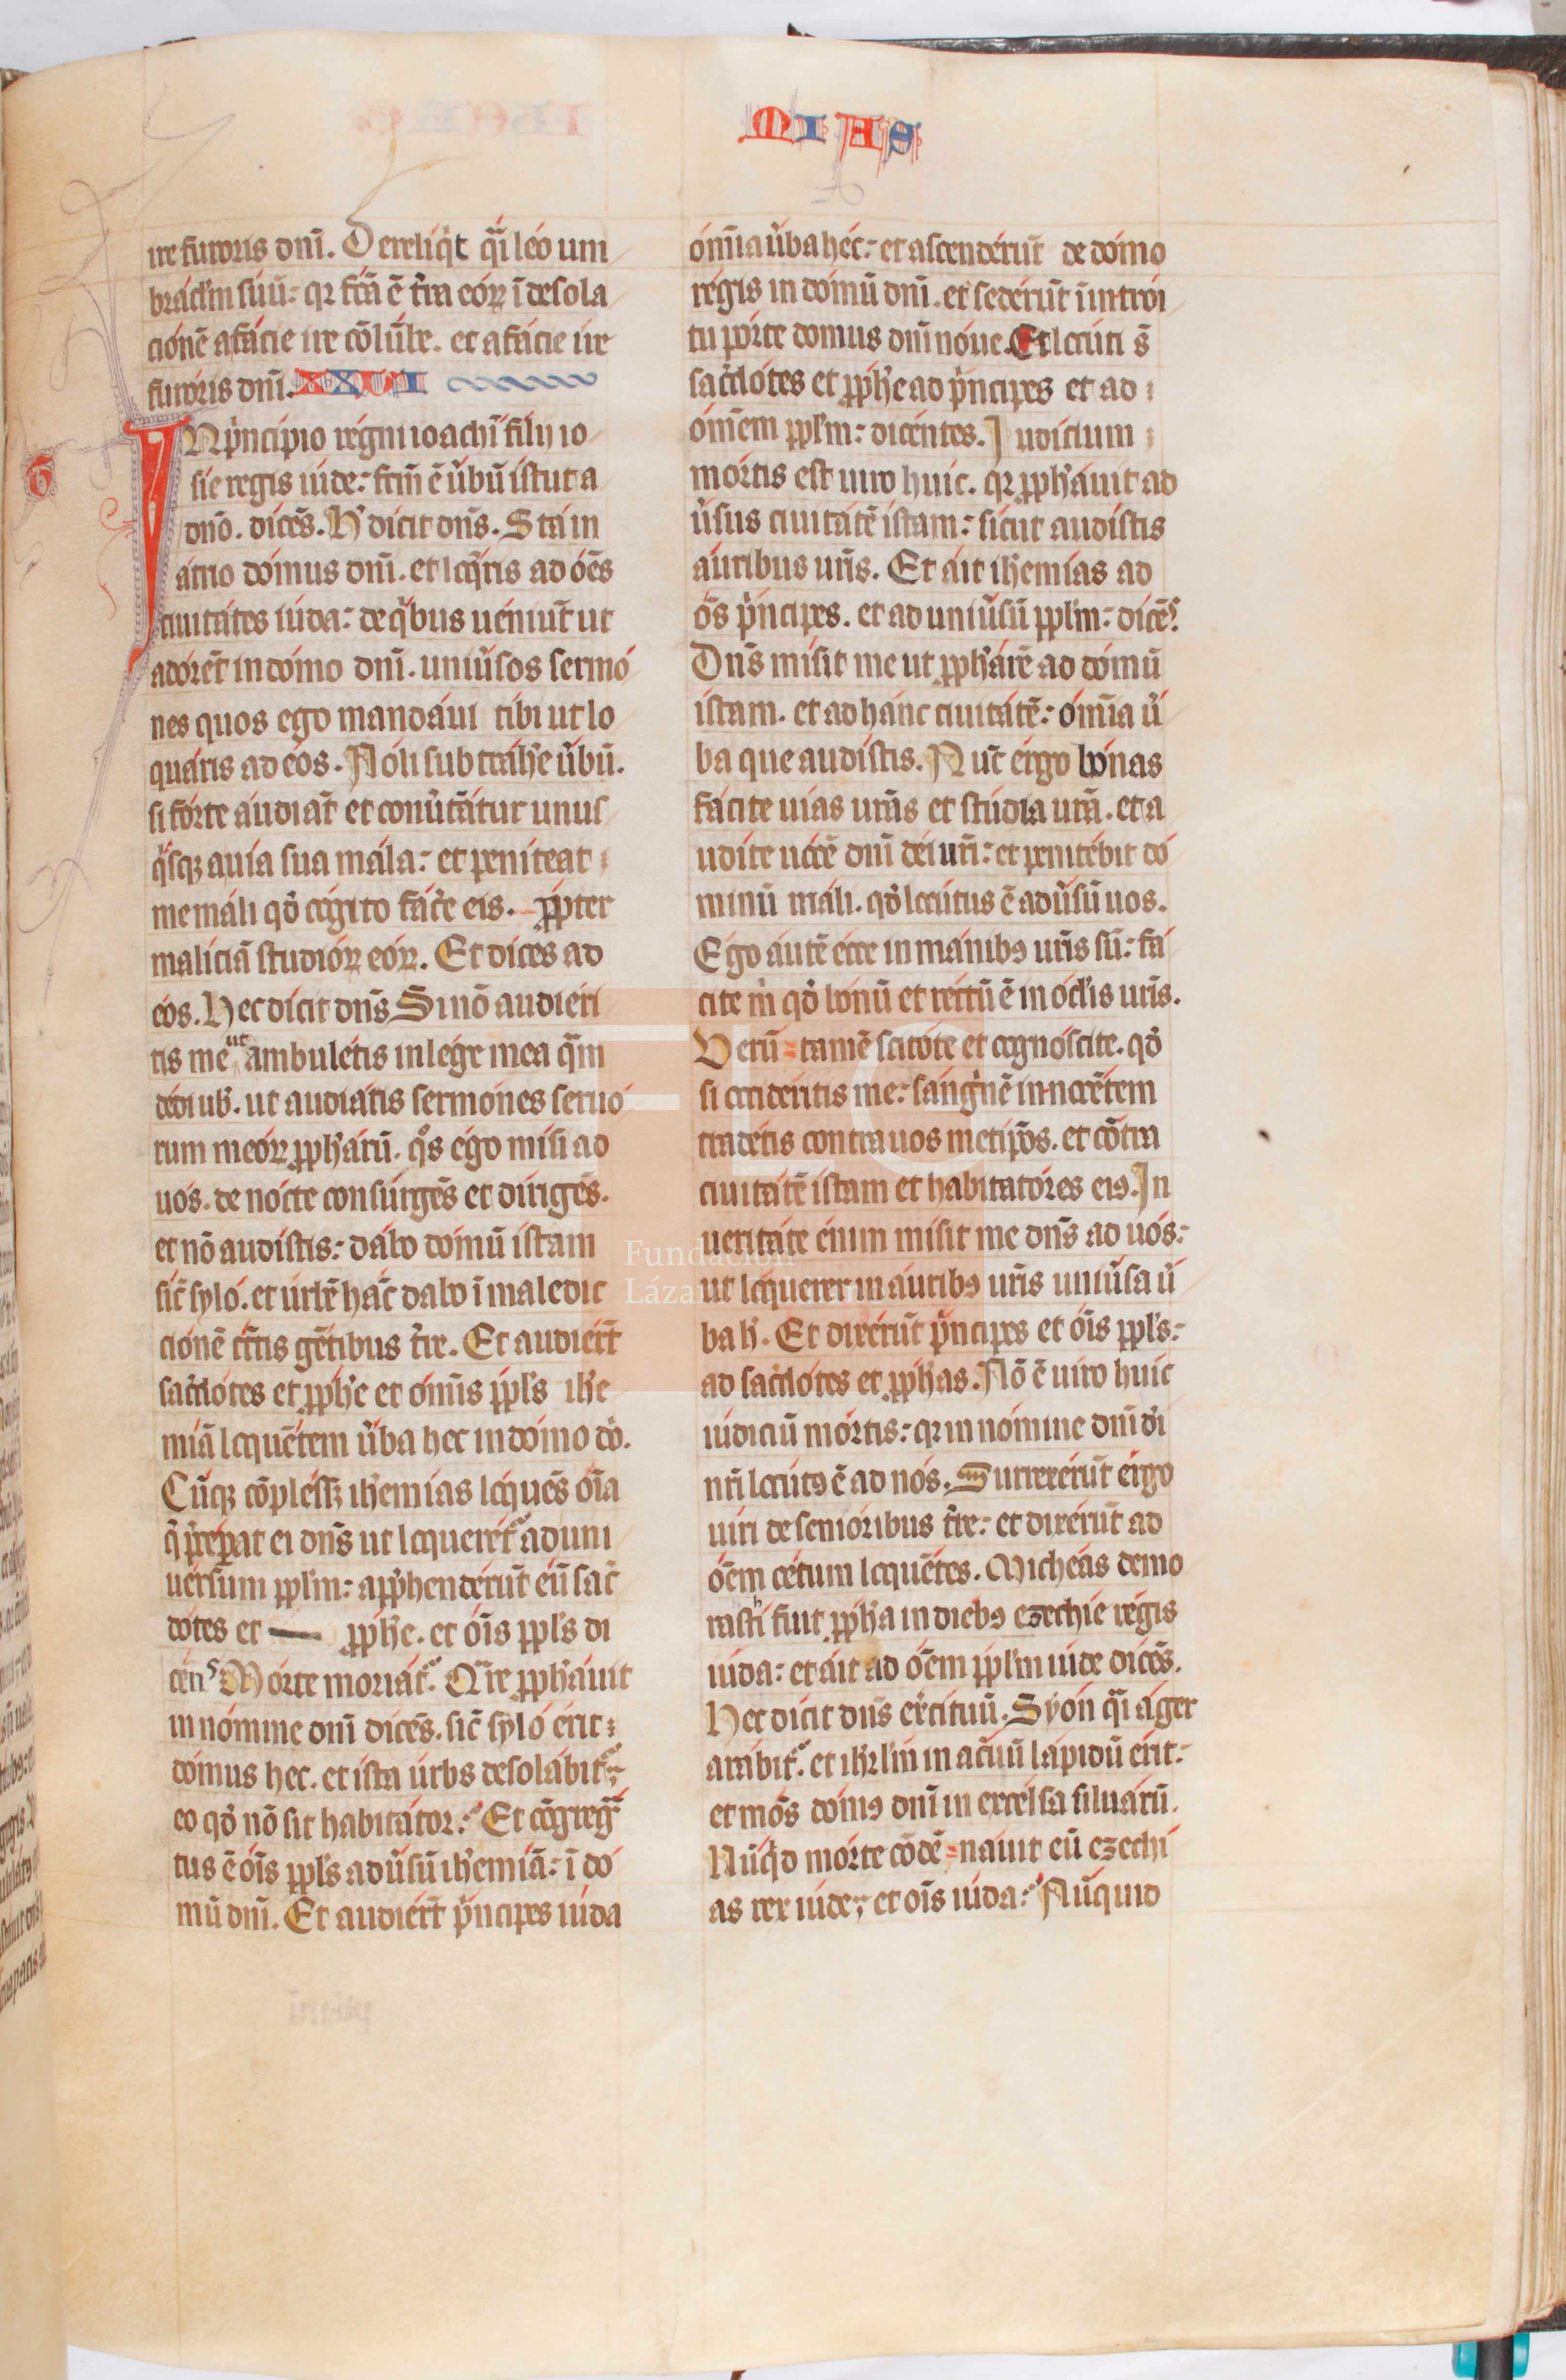 MIAS
ire furoris dnī. Dereliq̇t q̄i leo um
brac̄lm suū: qꝛ fc̄a ē tr̄a eoꝝ ī desola
cionē a facie ire cōlūbe. et a facie ire
furoris dnī. XXVI
IN pͥncipio regni ioachī filij io
sie regis iude: fc̄m ē ūbū istut a
dn̄o. dicēs. H̄ dicit dn̄s. Sta in
atrio domus dnī. et loq̄ris ad oēs
ciuitates iuda: de qͥbus ueniūt ut
adorēt in domo dnī. uniūsos sermo
nes quos ego mandaui tibi ut lo
quaris ad eos. Noli subtrahe̅ ūbū.
si forte audiāt et conūtātur unus
qͥsqꝫ a uia sua mala: et peniteat
me mali qd̄ cogito fac̄e eis. ꝓpter
maliciā studioꝝ eoꝝ. Et dices ad
eos. Hec dicit dn̄s Si nō audieri
tis me ut ambuletis in lege mea q̄m
dedi uob̄. ut audiatis sermones seruo
rum meoꝝ ꝓph̄arū. qͦs ego misi ad
uos. de nocte consurgēs et dirigēs.
et nō audistis: dabo domū istam
sic̄ sylo. et urbē hāc dabo ī maledic
cionē cc̄tis gētibus tr̄re. Et audier̄t
sac̄dotes et ꝓph̄e et omīs ppl̄s ih̄e
miā loquētem ūba hec in domo dō.
Cūqꝫ cōplessꝫ ih̄emias loquēs oīa
q̄ p̄cepat ei dn̄s ut loquereṫ ad uni
uersum ppl̄m: app̄henderūt eū sac̄
dotes et ꝓph̄e. et oīs ppl̄s di
cenˢ Morte moriaṫ. Qͣre ꝓph̄auit
in nomine dnī dicēs. sic̄ sylo erit:
domus hec. et ista urbs desolabiṫ:
eo qd̄ nō sit habitator. Et cōgregͣ
tus ē oīs ppl̄s adūsū ih̄emiā: ī do
mū dnī. Et audier̄t pͥncipes iuda
omīa ūba hec: et ascenderūt de domo
regis in domū dnī. et sederūt ī introi
tu porte domus dnī noue. Et locuti s̄
sac̄dotes et ꝓph̄e ad pͥncipes et ad
omēm ppl̄m: dicentes. Iudicium
mortis est uiro huic. qꝛ ꝓph̄auit ad
ūsus ciuitatē istam: sicut audistis
auribus ur̄is. Et ait ih̄emias ad
ōs pͥncipes. et ad uniūsū ppl̄m: dicēˢ.
Dn̄s misit me ut ꝓph̄arē ad domū
istam. et ad hanc ciuitatē: omīa ū
ba que audistis. Nūc ergo bonas
facite uias ur̄as et studia ur̄a. et a
udite uocē dnī dei ur̄i: et penitebit do
minū mali. qd̄ locutus ē adūsū uos.
Ego autē ecce in manibꝯ ur̄is sū: fa
cite m̄ qd̄ bonū et rectū ē in oc̄lis ur̄is.
Verū tamē scitote et cognoscite. qd̄
si occideritis me: sangͥnē innocētem
tradetis contra uos metip̄os. et cōtra
ciuitatē istam et habitatores eiꝯ. In
ueritate enim misit me dn̄s ad uos:
ut loquerer in auribꝯ ur̄is uniūsa ū
ba h̄. Et dixerūt pͥncipes et oīs ppl̄s:
ad sac̄dotes et ꝓph̄as. Nō ē uiro huic
iudiciū mortis: qꝛ in nomine dnī dī
nr̄i locutꝯ ē ad nos. Surrexerūt ergo
uiri de senioribus tr̄re: et dixerūt ad
oēm cetum loquētes. Micheas demo
rasthi fuit ꝓph̄a in diebꝯ ezechie regis
iuda: et ait ad oēm ppl̄m iude dicēs.
Hec dicit dn̄s ex̄cituū. Syon q̄i ager
arabiṫ. et ih̄rlm̄ in ac̄uū lapidū erit:
et mōs domꝯ dnī in excelsa siluarū.
Nūqͥd morte cōdē nauit eū ezechi
as rex iude: et oīs iuda: Nūquid